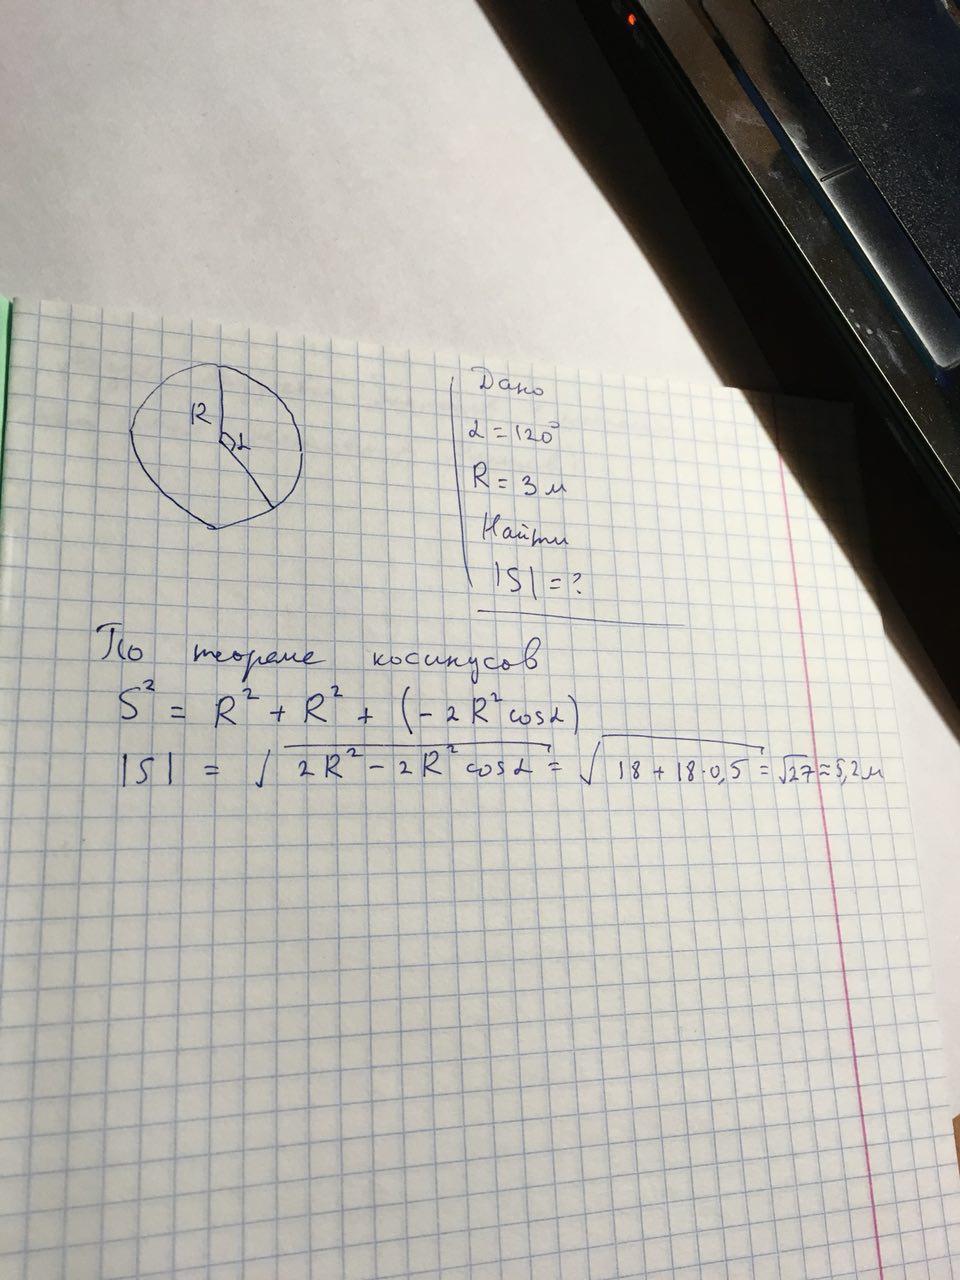 R
α
Дано
α = 120°
R = 3 м
Найти
|S| = ?
По теореме косинусов
S² = R² + R² + (- 2R² cosα)
|S| = √2R² - 2R² cosα = √18 + 18·0,5 = √27 ≈ 5,2 м